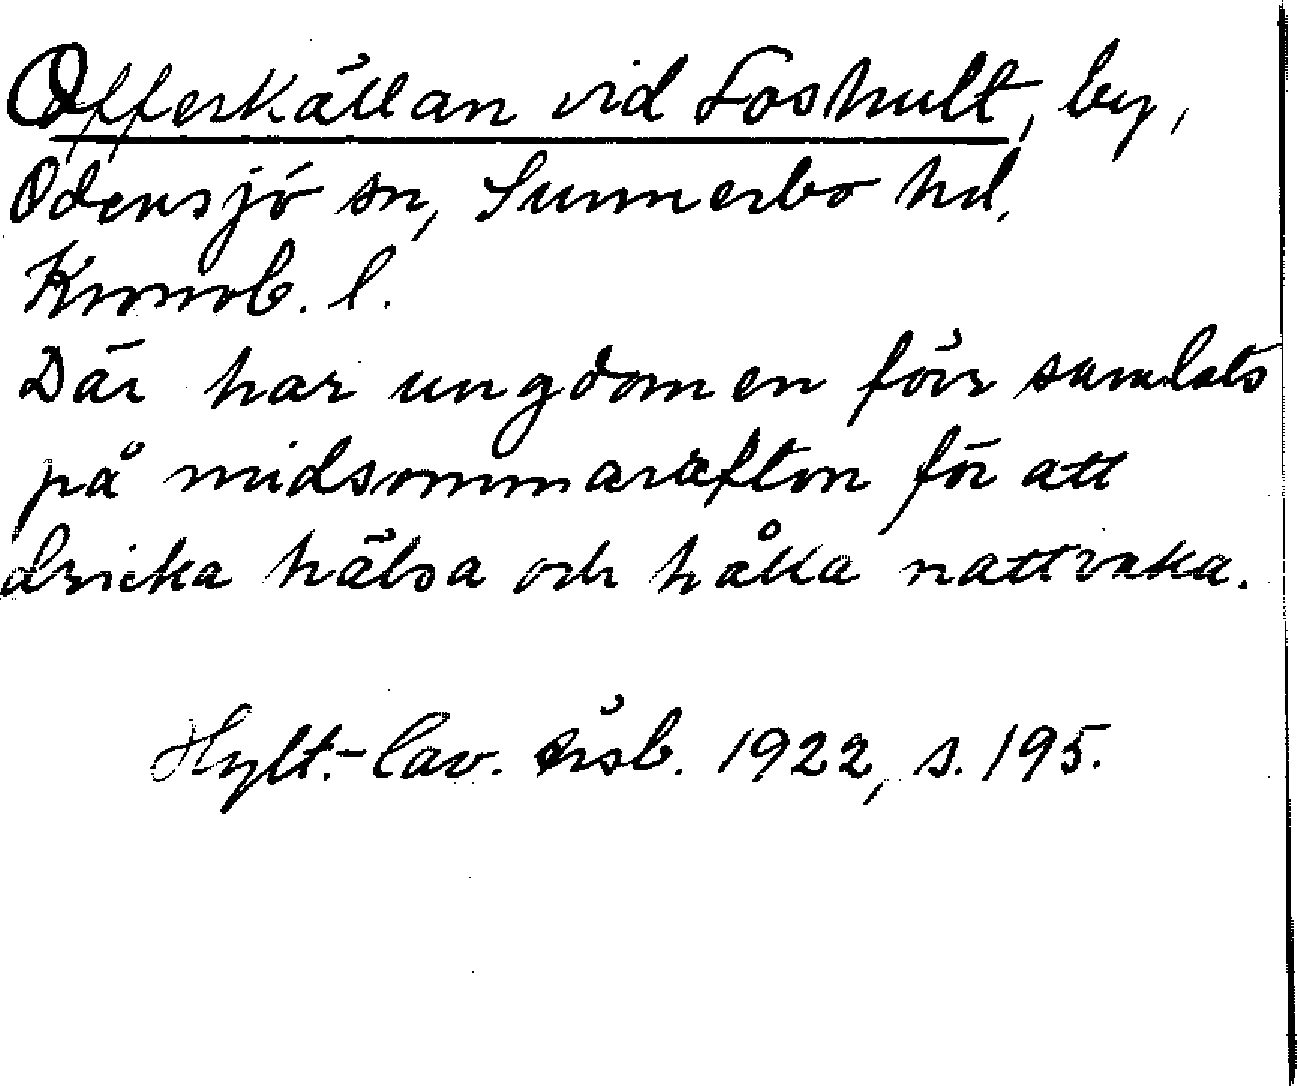 Offerkällan vid Loshult, by,
Odensjö sn, Sunnerbo hd,
Kronob. l.
Där har ungdomen förr samlats
på midsommarafton för att
dricka hälsa och hålla nattvaka.
Hylt.-Cav. årsb. 1922, s. 195.